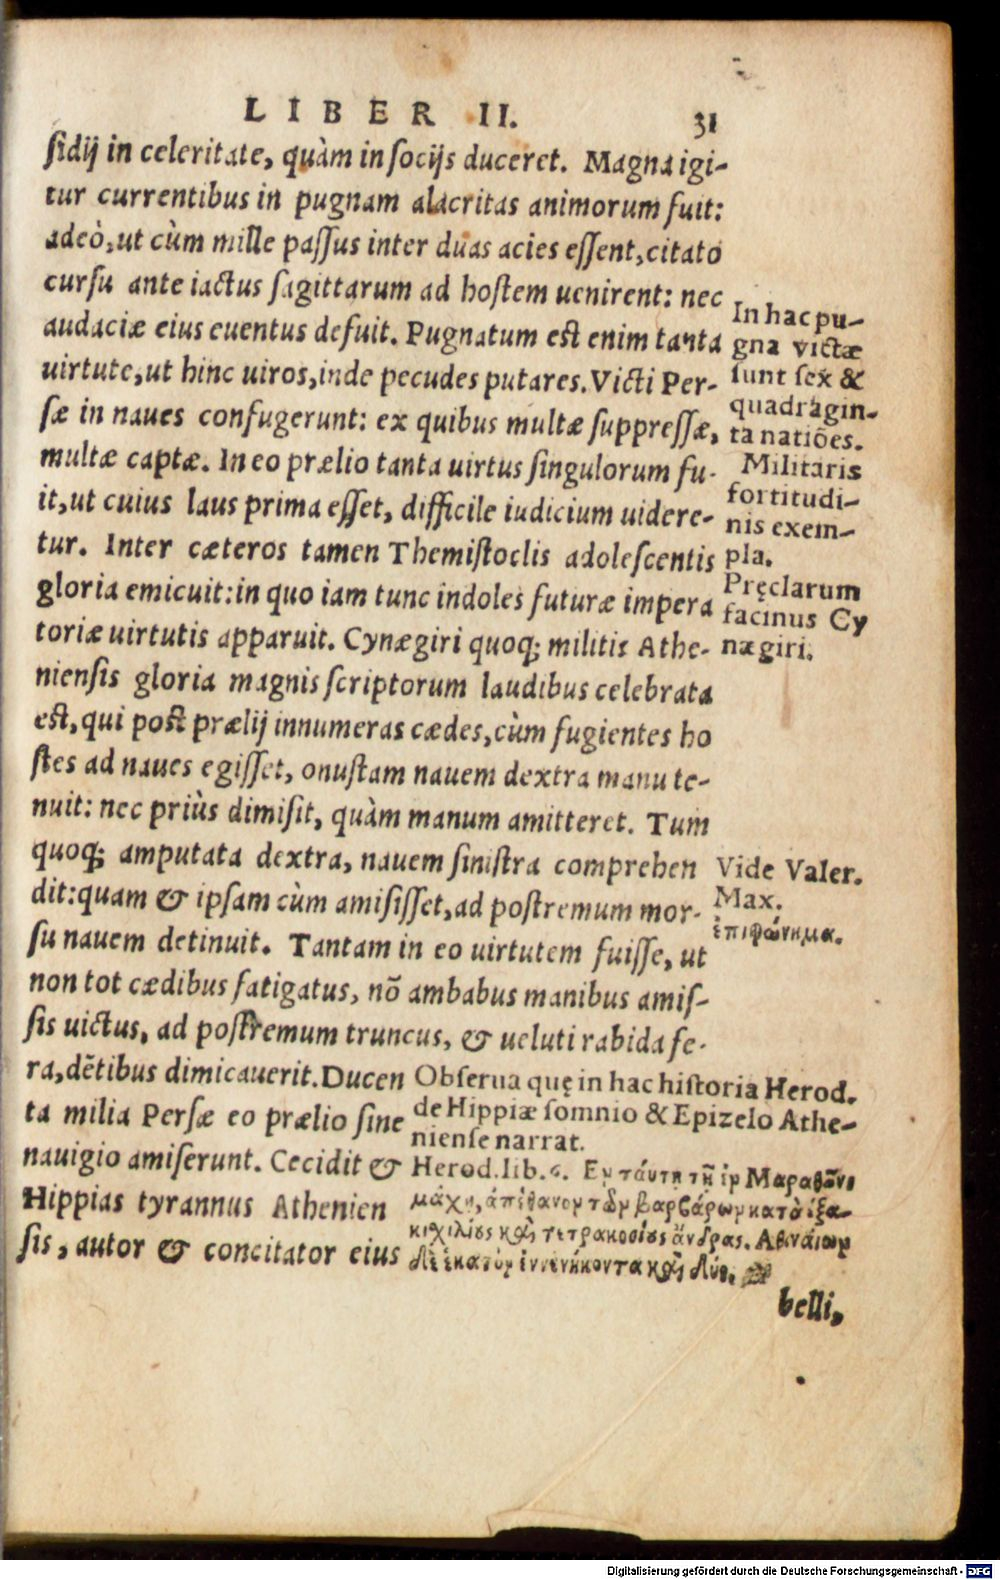 LIBER II. 31
sidij in celeritate, quàm in socijs duceret. Magna igi-
tur currentibus in pugnam alacritas animorum fuit:
adeò, ut cùm mille passus inter duas acies essent, citato
cursu ante iactus sagittarum ad hostem uenirent: nec
audaciæ eius euentus defuit. Pugnatum est enim tanta
uirtute, ut hinc uiros, inde pecudes putares. Victi Per-
sæ in naues confugerunt: ex quibus multæ suppressæ,
multæ captæ. In eo prælio tanta uirtus singulorum fu-
it, ut cuius laus prima esset, difficile iudicium uidere-
tur. Inter cæteros tamen Themistoclis adolescentis
gloria emicuit: in quo iam tunc indoles futuræ impera
toriæ uirtutis apparuit. Cynægiri quoq; militis Athe-
niensis gloria magnis scriptorum laudibus celebrata
est, qui post prælij innumeras cædes, cùm fugientes ho
stes ad naues egisset, onustam nauem dextra manu te-
nuit: nec priùs dimisit, quàm manum amitteret. Tum
quoq; amputata dextra, nauem sinistra comprehen
dit: quam & ipsam cùm amisisset, ad postremum mor-
su nauem detinuit. Tantam in eo uirtutem fuisse, ut
non tot cædibus fatigatus, nõ ambabus manibus amis-
sis uictus, ad postremum truncus, & ueluti rabida fe-
ra, dẽtibus dimicauerit. Ducen
ta milia Persæ eo prælio sine
nauigio amiserunt. Cecidit &
Hippias tyrannus Athenien
sis, autor & concitator eius
In hac pu-
gna victæ
sunt sex &
quadragin-
ta natiões.
Militaris
fortitudi-
nis exem-
pla.
Pręclarum
facinus Cy
nægiri.
Vide Valer.
Max.
ἐπιφώνημα.
Obserua quę in hac historia Herod.
de Hippiæ somnio & Epizelo Athe-
niense narrat.
Herod. lib. 6. Εν ταύτῃ τῇ ἐν Μαραθῶνι
μάχῃ, ἀπέθανον τῶν βαρβάρων κατὰ ἑξα-
κιχιλίους καὶ τετρακοσίους ἄνδρας. Αθηναίων
δὲ ἑκατὸν ἐννενήκοντα καὶ δύο.
belli,
Digitalisierung gefördert durch die Deutsche Forschungsgemeinschaft - DFG